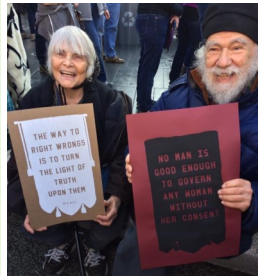 THE WAY TO
RIGHT WRONGS
IS TO TURN
THE LIGHT OF
TRUTH
UPON THEM
NO MAN IS
GOOD ENOUGH
TO GOVERN
ANY WOMAN
WITHOUT
HER CONSENT